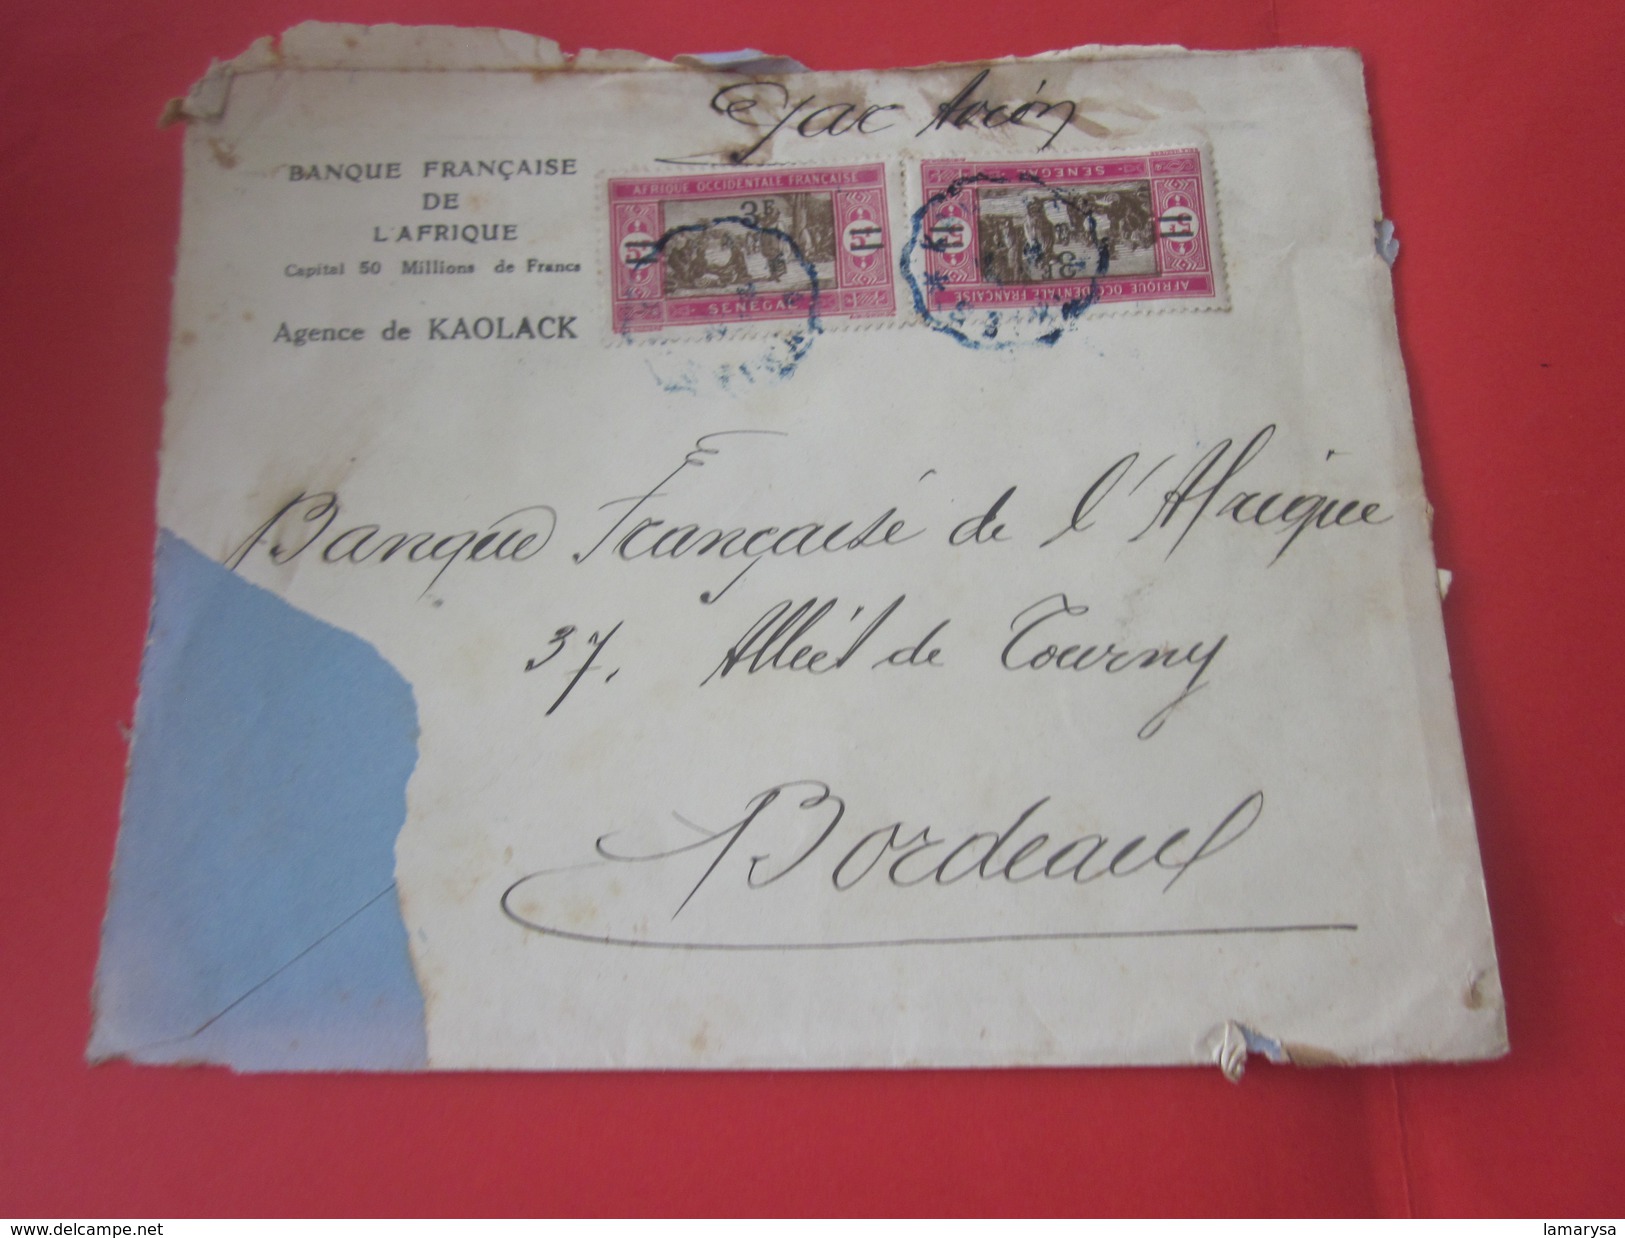 par Avion
BANQUE FRANÇAISE
DE
L'AFRIQUE
Capital 50 Millions de Francs
Agence de KAOLACK
AFRIQUE OCCIDENTALE FRANÇAISE
3F
SENEGAL
SENEGAL
3F
AFRIQUE OCCIDENTALE FRANÇAISE
Banque Française de l'Afrique
37, Allées de Tourny
Bordeaux
www.delcampe.net
lamarysa